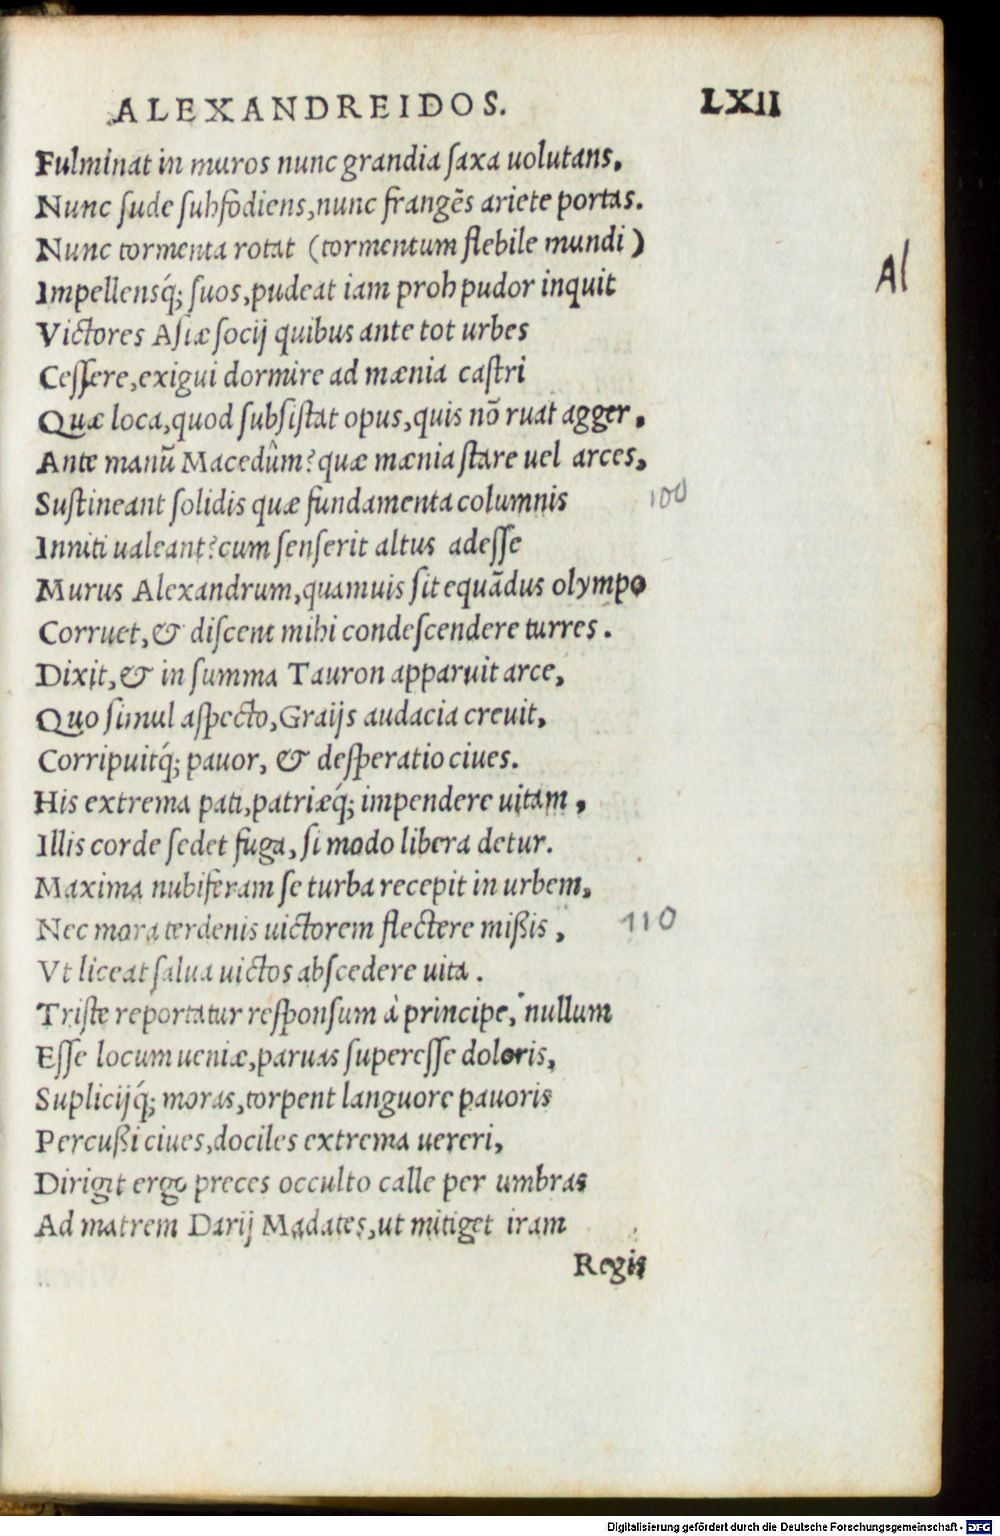 ALEXANDREIDOS. LXII
Fulminat in muros nunc grandia ſaxa uolutans,
Nunc ſude ſubfodiens,nunc frangēs ariete portas.
Nunc tormenta rotat (tormentum flebile mundi)
Al
Impellensq́; ſuos,pudeat iam proh pudor inquit
Victores Aſiæ ſocij quibus ante tot urbes
Ceſſere,exigui dormire ad mænia caſtri
Quæ loca,quod ſubſiſtat opus,quis nō ruat agger,
Ante manū Macedûm?quæ mænia ſtare uel arces,
Suſtineant ſolidis quæ fundamenta columnis 100
Inniti ualeant?cum ſenſerit altus adeſſe
Murus Alexandrum,quamuis ſit equādus olympo
Corruet,& diſcent mihi condeſcendere turres.
Dixit,& in ſumma Tauron apparuit arce,
Quo ſimul aſpecto,Graijs audacia creuit,
Corripuitq́; pauor, & deſperatio ciues.
His extrema pati,patriæq́; impendere uitam,
Illis corde ſedet fuga, ſi modo libera detur.
Maxima nubiferam ſe turba recepit in urbem,
Nec mora terdenis uictorem flectere mißis, 110
Vt liceat ſalua uictos abſcedere uita.
Triſte reportatur reſponſum à principe, nullum
Eſſe locum ueniæ,paruas ſupereſſe doloris,
Suplicijq́; moras,torpent languore pauoris
Percußi ciues,dociles extrema uereri,
Dirigit ergo preces occulto calle per umbras
Ad matrem Darij Madates,ut mitiget iram
Regis
Digitalisierung gefördert durch die Deutsche Forschungsgemeinschaft - DFG